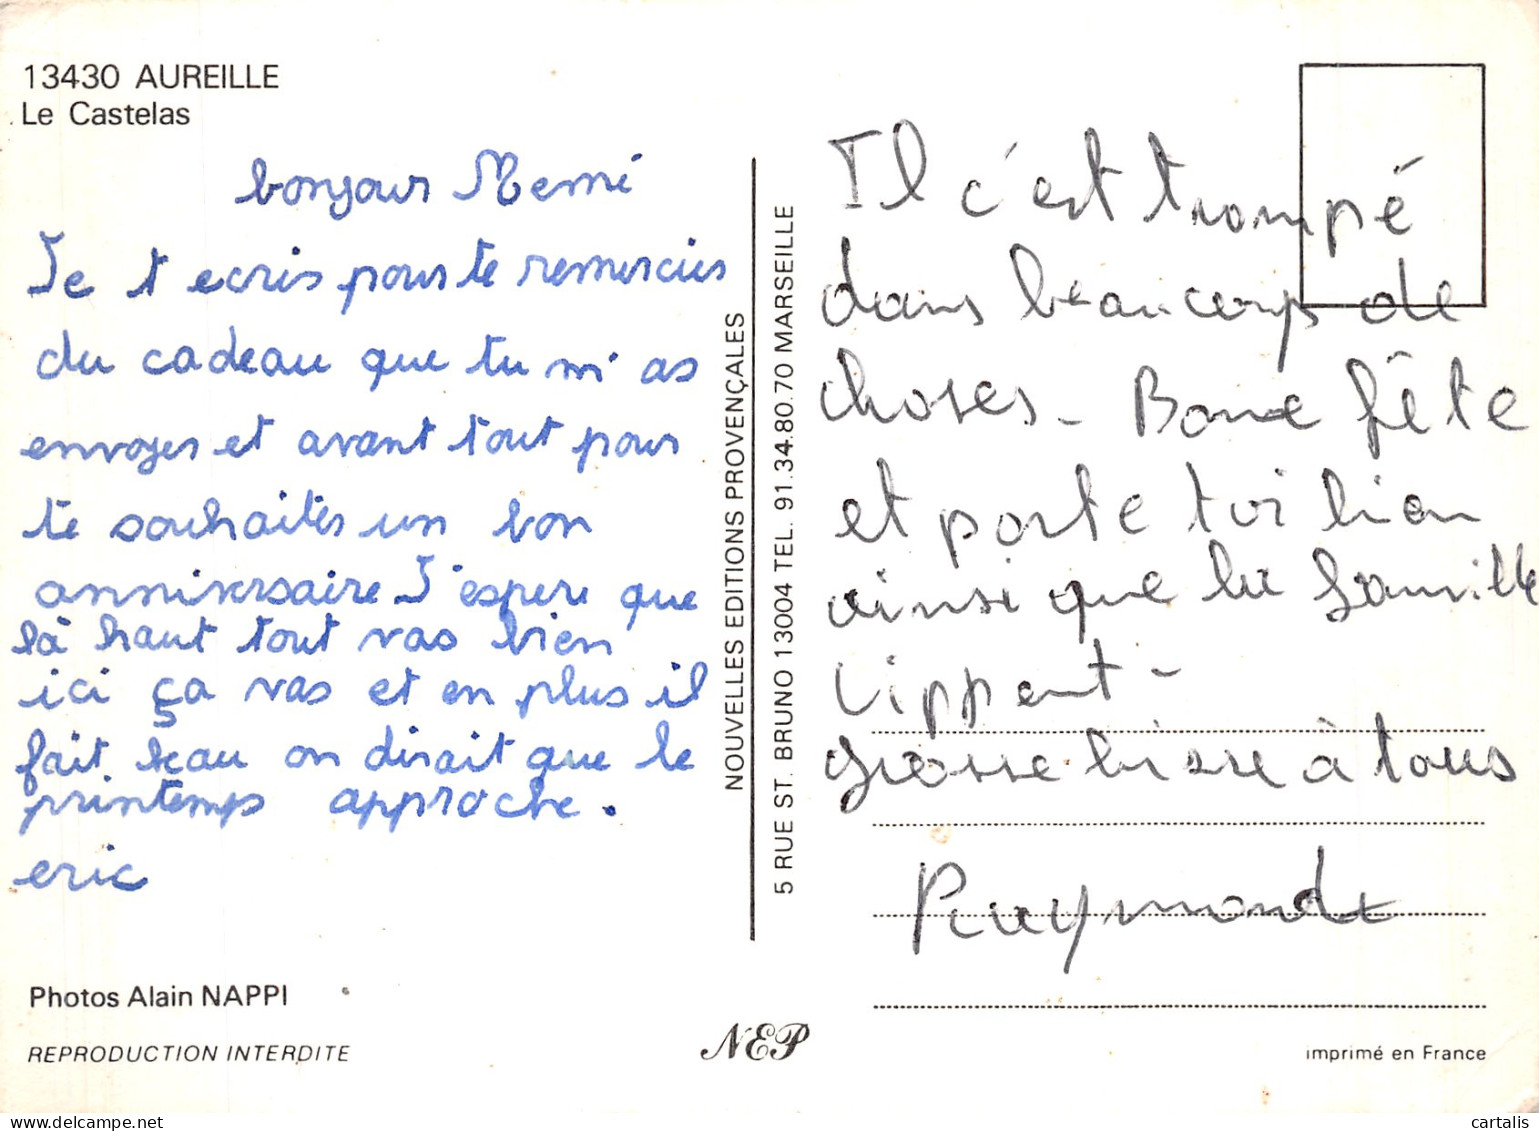 13430 AUREILLE
Le Castelas
bonjour Memé
Je t ecris pour te remercier
du cadeau que tu m'as
envoyer et avant tout pour
te souhaiter un bon
anniversaire J'espere que
là haut tout vas bien
ici ça vas et en plus il
fait beau on dirait que le
printemps approche.
eric
Photos Alain NAPPI
REPRODUCTION INTERDITE
NOUVELLES EDITIONS PROVENÇALES
5 RUE ST. BRUNO 13004 TEL. 91.34.80.70 MARSEILLE
NEP
Il c'est trompé
dans beaucoup de
choses - Bonne fête
et porte toi bien
ainsi que la famille
Lippent -
grosse bisse à tous
Raymonde
imprimé en France
cartalis